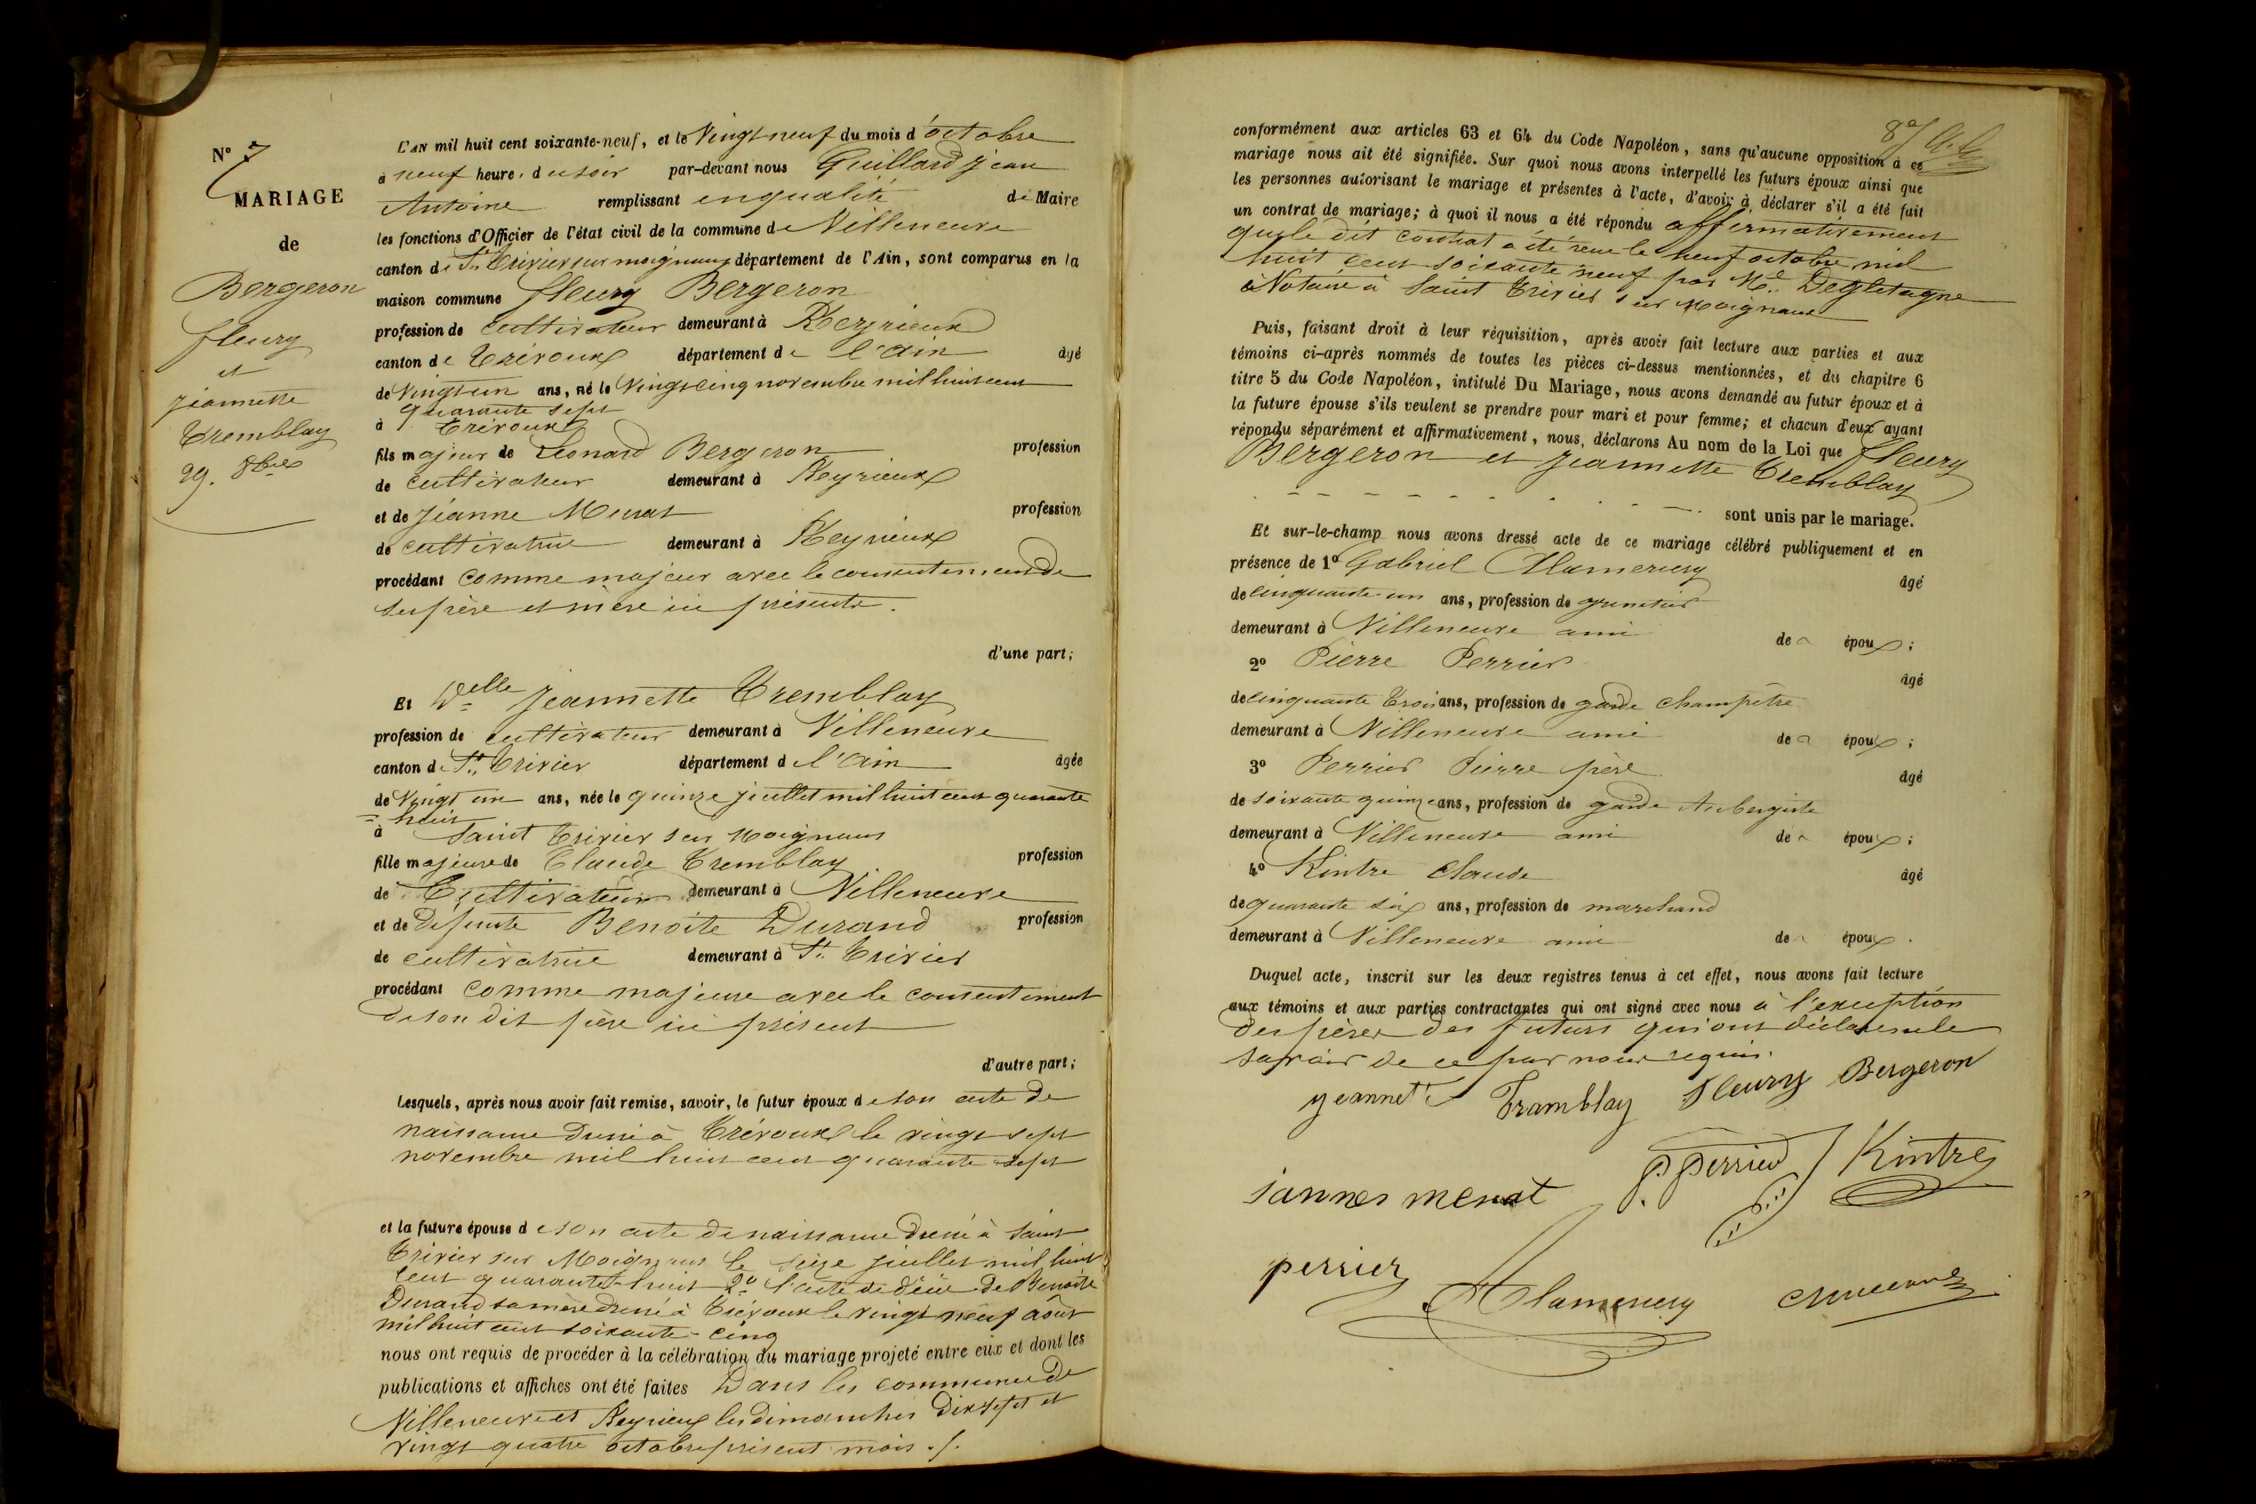 N° 7
MARIAGE
de
Bergeron
fleury
et
jeannette
Tremblay
29. 8bre
L'AN mil huit cent soixante-neuf, et le Vingt neuf du mois d'octobre
à neuf heure. du soir par-devant nous Guillard jean
Antoine remplissant en qualité de Maire
les fonctions d'Officier de l'état civil de la commune de Villeneuve
canton de St. Trivier sur moignans département de l'Ain, sont comparus en la
maison commune fleury Bergeron
profession de cultivateur demeurant à Reyrieux
canton de Trévoux département de l'ain âgé
de Vingt un ans, né le Vingt cinq novembre mil huit cent
quarante sept
à Trévoux
fils majeur de Léonard Bergeron profession
de cultivateur demeurant à Reyrieux
et de jeanne profession
de cultivatrice demeurant à Reyrieux
procédant comme majeur avec le consentement de
ses père et mère ici présents.
d'une part;
Et Delle jeannette Tremblay
profession de cultivateur demeurant à Villeneuve
canton de St. Trivier département de l'ain âgée
de Vingt un ans, née le quinze juillet mil huit cent quarante
= huit
à Saint Trivier sur Moignans
fille majeure de Claude Tremblay profession
de Cultivateur demeurant à Villeneuve
et de défunte Benoite Durand profession
de cultivatrice demeurant à St. Trivier
procédant comme majeure avec le consentement
de son dit père ici présent
d'autre part;
Lesquels, après nous avoir fait remise, savoir, le futur époux de son acte de
naissance dressé à Trévoux le vingt sept
novembre mil huit cent quarante sept
et la future épouse de son acte de naissance dressé à Saint
Trivier sur Moignans le seize juillet mil huit
cent quarante-huit 2° l'acte de décès de Benoite
Durand sa mère dressé à Trévoux le vingt neuf août
mil huit cent soixante-cinq
nous ont requis de procéder à la célébration du mariage projeté entre eux et dont les
publications et affiches ont été faites Dans les communes de
Villeneuve et Reyrieux les dimanches Dix sept et
vingt quatre octobre présent mois ./.
conformément aux articles 63 et 64 du Code Napoléon, sans qu'aucune opposition à ce
mariage nous ait été signifiée. Sur quoi nous avons interpellé les futurs époux ainsi que
les personnes autorisant le mariage et présentes à l'acte, d'avoir à déclarer s'il a été fait
un contrat de mariage; à quoi il nous a été répondu affirmativement
que le dit contrat a été reçu le neuf octobre mil
huit cent soixante neuf par Me.
Notaire à Saint Trivier sur Moignans
Puis, faisant droit à leur réquisition, après avoir fait lecture aux parties et aux
témoins ci-après nommés de toutes les pièces ci-dessus mentionnées, et du chapitre 6
titre 5 du Code Napoléon, intitulé Du Mariage, nous avons demandé au futur époux et à
la future épouse s'ils veulent se prendre pour mari et pour femme; et chacun d'eux ayant
répondu séparément et affirmativement, nous déclarons Au nom de la Loi que fleury
Bergeron et jeannette Tremblay
sont unis par le mariage.
Et sur-le-champ nous avons dressé acte de ce mariage célébré publiquement et en
présence de 1° Gabriel âgé
de cinquante-un ans, profession de
demeurant à Villeneuve ami de époux;
2° Pierre Perrier âgé
de cinquante trois ans, profession de garde champêtre
demeurant à Villeneuve ami de époux;
3° Perrier Pierre père âgé
de soixante quinze ans, profession de garde Aubergiste
demeurant à Villeneuve ami de époux;
4° Kintre Claude âgé
de quarante six ans, profession de marchand
demeurant à Villeneuve ami de époux.
Duquel acte, inscrit sur les deux registres tenus à cet effet, nous avons fait lecture
aux témoins et aux parties contractantes qui ont signé avec nous à l'exception
des pères des futurs qui ont déclaré ne le
savoir de ce par nous requis.
jeannette Tramblay Fleury Bergeron
P Perrier Kintre
perrier